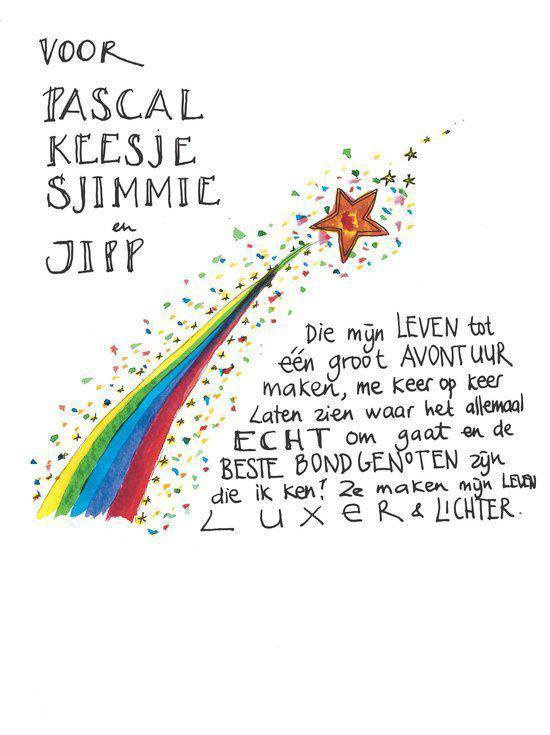 VOOR
PASCAL
KEESJE
SJIMMIE
en
JIPP
Die mijn LEVEN tot
één groot AVONTUUR
maken, me keer op keer
Laten zien waar het allemaal
ECHT om gaat en de
BESTE BONDGENOTEN zijn
die ik ken! Ze maken mijn LEVEN
LUXER & LICHTER.